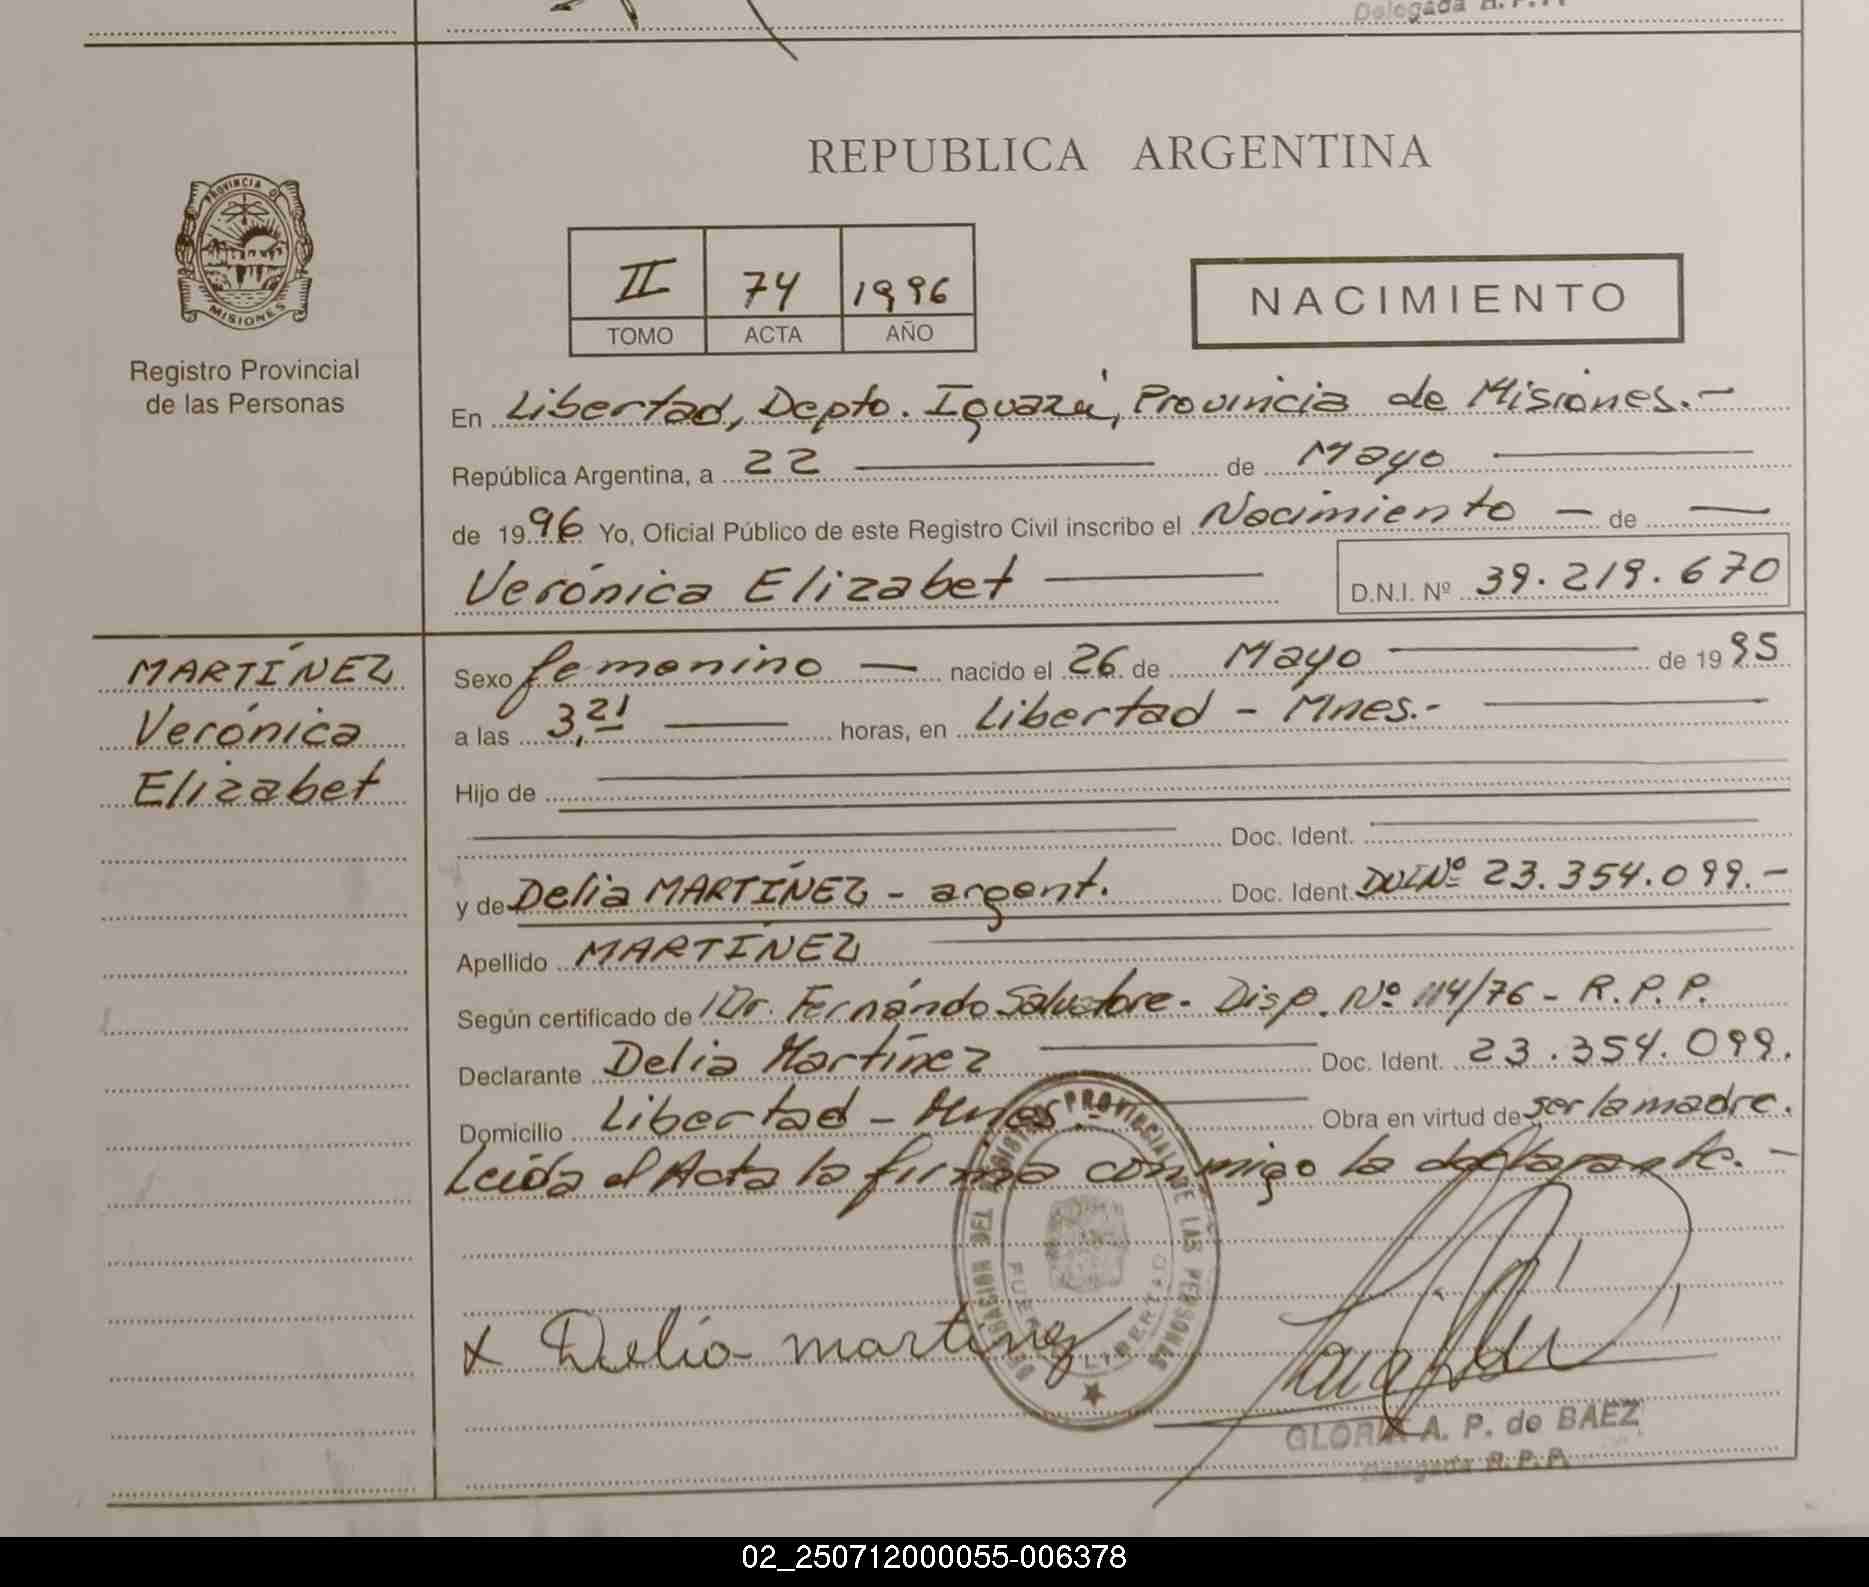 Delegada R.P.P.
REPUBLICA ARGENTINA
PROVINCIA DE
MISIONES
Registro Provincial
de las Personas
II 74 1996
TOMO ACTA AÑO
NACIMIENTO
En Libertad, Depto. Iguazú, Provincia de Misiones.-
República Argentina, a 22 de Mayo
de 1996 Yo, Oficial Público de este Registro Civil inscribo el Nacimiento - de
Verónica Elizabet D.N.I. Nº 39.219.670
MARTÍNEZ
Verónica
Elizabet
Sexo femenino nacido el 26 de Mayo de 1995
a las 3,21 horas, en Libertad - Mnes.-
Hijo de
Doc. Ident.
y de Delia MARTÍNEZ - argent. Doc. Ident. DNI Nº 23.354.099.-
Apellido MARTÍNEZ
Según certificado de Dr. Fernándo Salvatore. Disp. Nº 114/76 - R.P.P.
Declarante Delia Martínez Doc. Ident. 23.354.099.
Domicilio Libertad - Mnes - Obra en virtud de ser la madre.
Leída el Acta la firma conmigo la declarante.-
PROVINCIAL DE LAS PERSONAS
LIBERTAD
x Delia martinez
GLORIA A. P. de BAEZ
Delegada R.P.P.
02_250712000055-006378